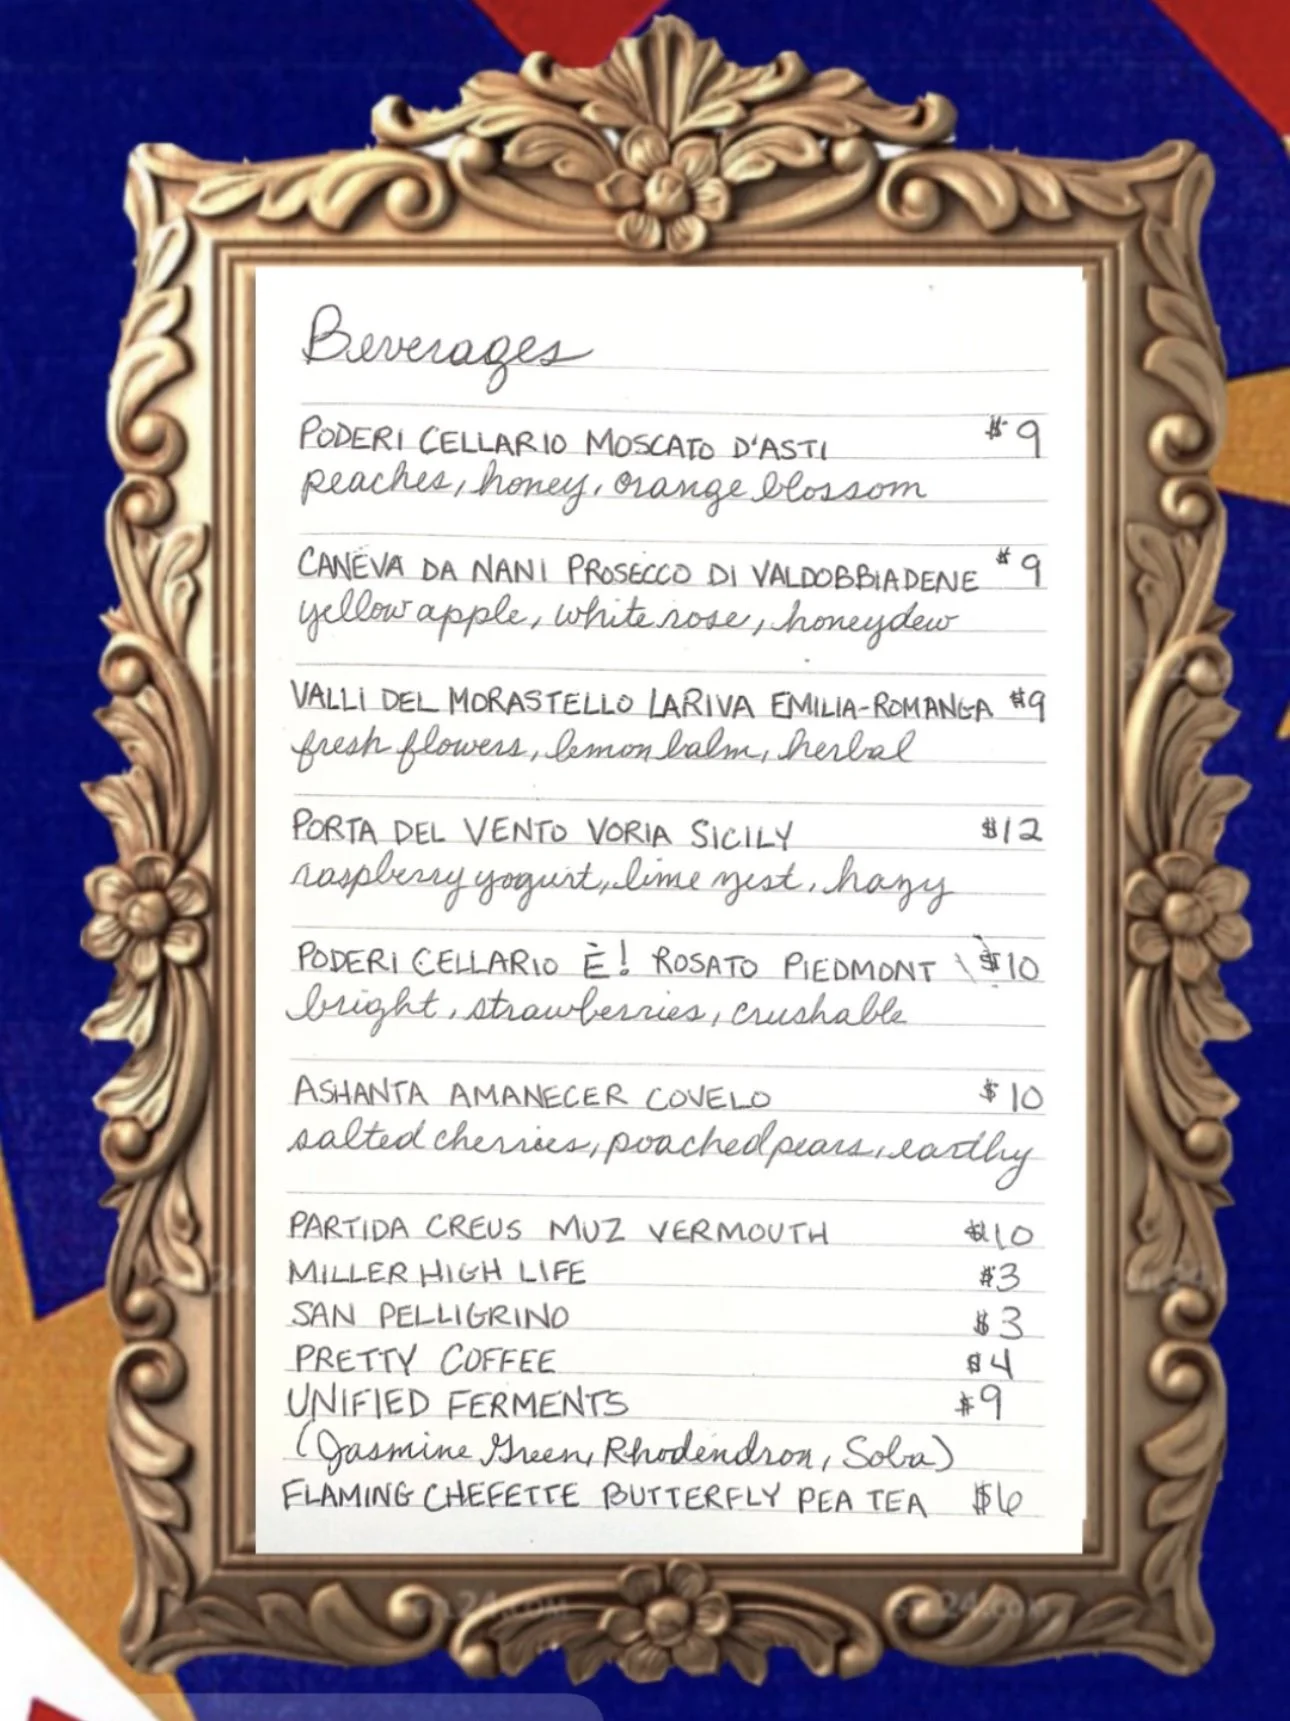 Beverages
PODERI CELLARIO MOSCATO D'ASTI $9
peaches, honey, orange blossom
CANEVA DA NANI PROSECCO DI VALDOBBIADENE $9
yellow apple, white rose, honeydew
VALLI DEL MORASTELLO LARIVA EMILIA-ROMANGA $9
fresh flowers, lemon balm, herbal
PORTA DEL VENTO VORIA SICILY $12
raspberry yogurt, lime zest, hazy
PODERI CELLARIO È! ROSATO PIEDMONT $10
bright, strawberries, crushable
ASHANTA AMANECER COVELO $10
salted cherries, poached pears, earthy
PARTIDA CREUS MUZ VERMOUTH $10
MILLER HIGH LIFE $3
SAN PELLIGRINO $3
PRETTY COFFEE $4
UNIFIED FERMENTS $9
(Jasmine Green, Rhodendron, Soba)
FLAMING CHEFETTE BUTTERFLY PEA TEA $6